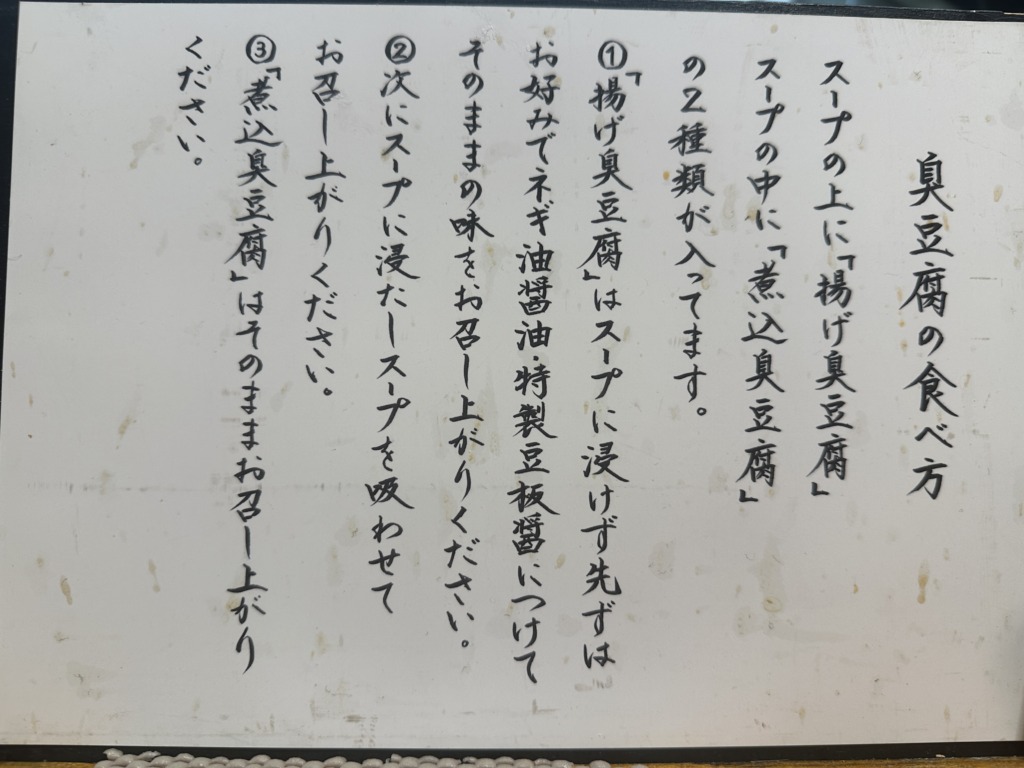 臭豆腐の食べ方
スープの上に「揚げ臭豆腐」
スープの中に「煮込臭豆腐」
の2種類が入ってます。
①「揚げ臭豆腐」はスープに浸けず先ずは
お好みでネギ油醤油・特製豆板醤につけて
そのままの味をお召し上がりください。
②次にスープに浸たしスープを吸わせて
お召し上がりください。
③「煮込臭豆腐」はそのままお召し上がり
ください。